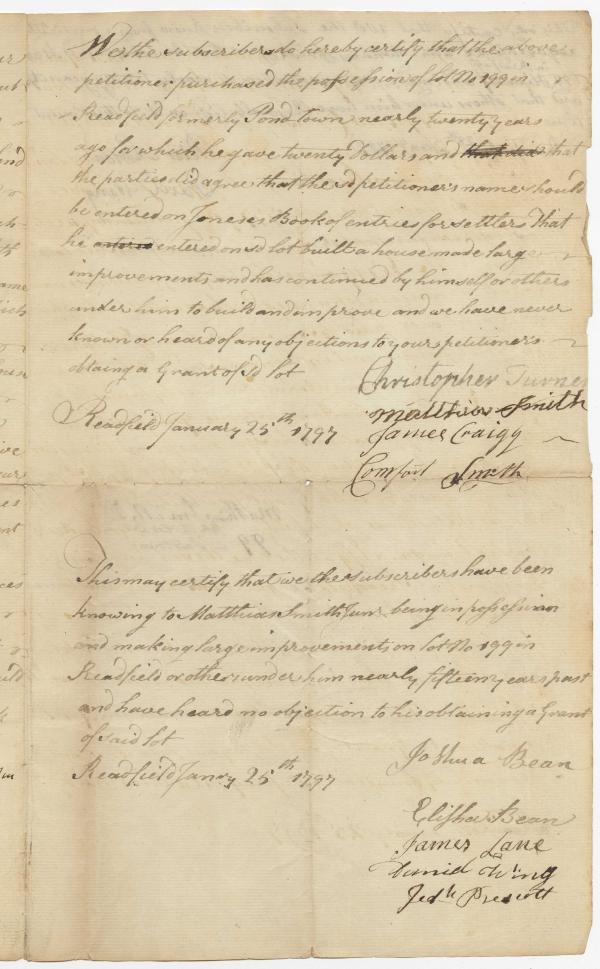 We the subscribers do hereby certify that the above
petitioner purchased the possession of lot No 199 in
Readfield formerly Pond town nearly twenty years
ago for which he gave twenty Dollars and that
the parties did agree that the sd petitioner's name should
be entered on Joneses Book of entries for settlers That
he entered on sd lot built a house made large
improvements and has continued by himself or others
under him to build and improve and we have never
known or heard of any objections to your petitioner's
obtaing a Grant of sd lot
Christopher Turner
Matthias Smith
Readfield January 25th 1797
James Craigg
Comfort Smith
This may certify that we the subscribers have been
knowing to Matthias Smith Junr being in possession
and making large improvements on lot No 199 in
Readfield or others under him nearly fifteen years past
and have heard no objection to his obtaining a Grant
of said lot
Joshua Bean
Readfield Janry 25th 1797
Elisha Bean
James Lane
Daniel Wing
Jedh Prescott